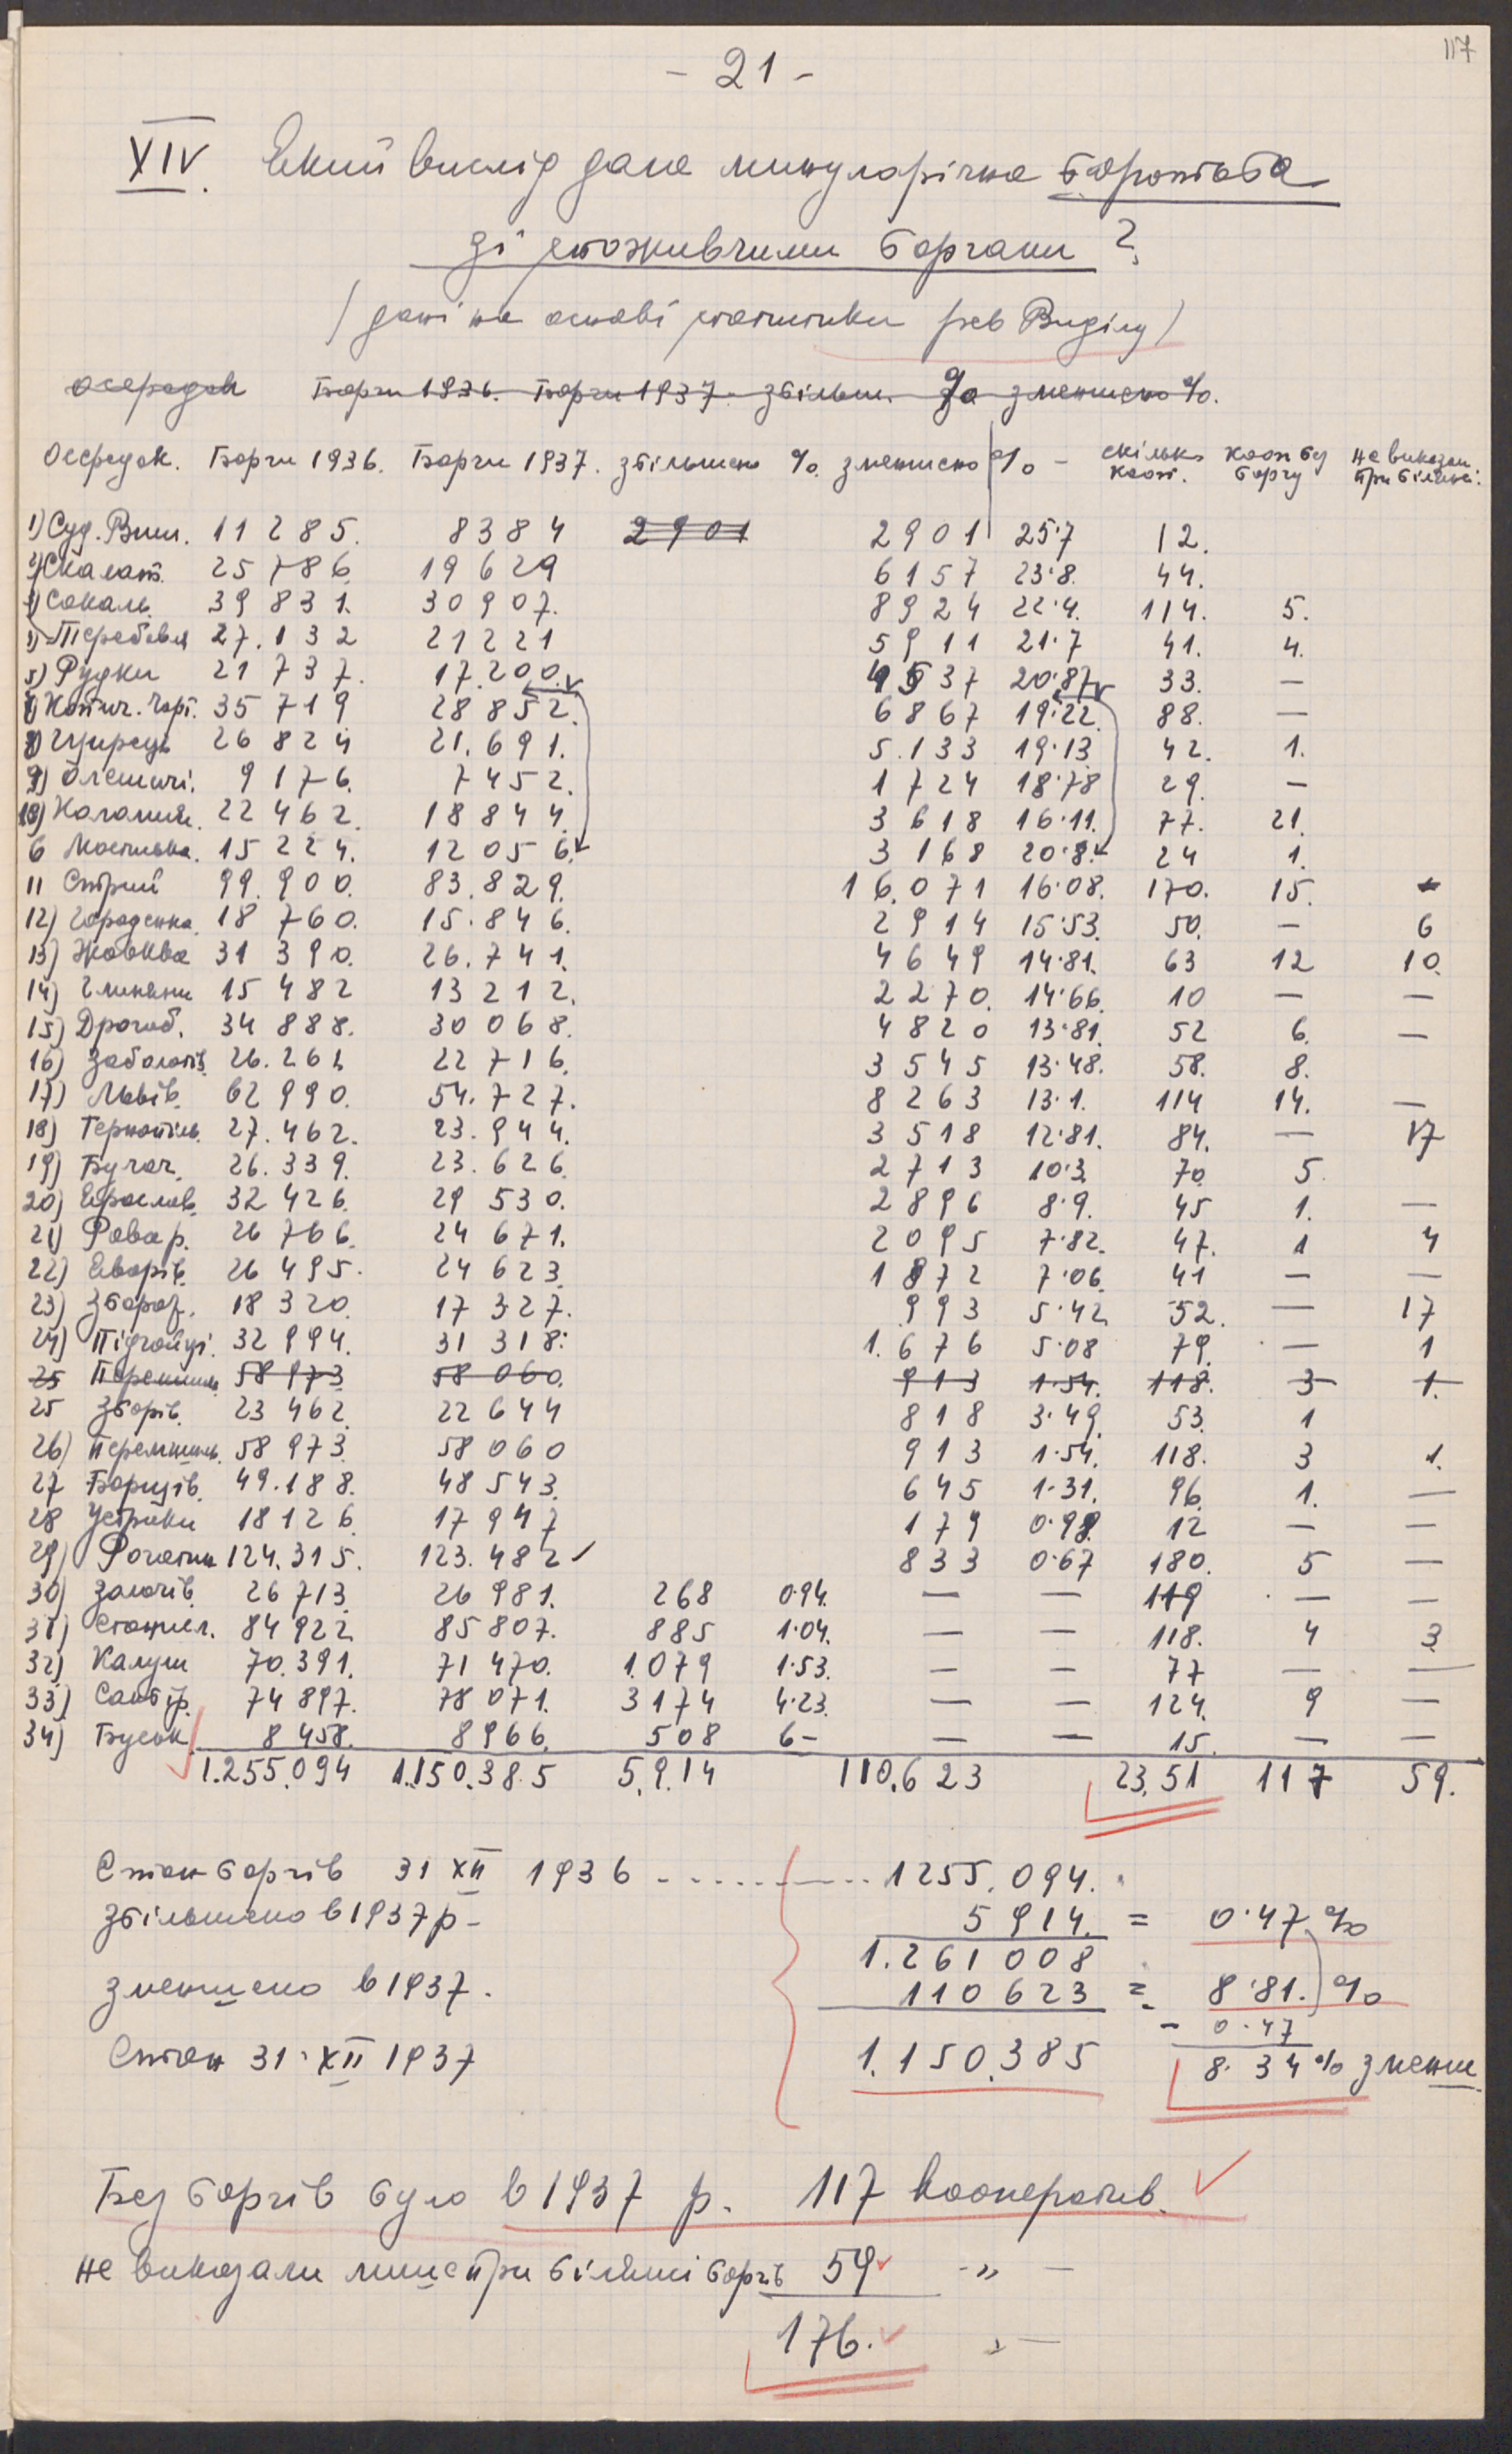 117
- 21 -
XIV. Який вислід дала минулорічна боротьба
зі споживчими боргами?
/ дані на основі статистики рев Виділу /
осередок Борги 1936. Борги 1937. збільш. % зменшено %.
Осередок. Борги 1936. Борги 1937. збільшено %. зменшено % - скілько кооп. кооп без боргу не виказали при білянсі.
1) Суд. Виш. 11 285. 8384 2901 2901 25·7 12.
2) Скалат. 25 786. 19629 6157 23·8. 44.
3) Сокаль. 39 831. 30907. 8924 22·4. 114. 5.
4) Теребовля 27.132 21221 5911 21·7 41. 4.
5) Рудки 21 737. 17.200. 4537 20·87 33. —
7) Копич. Чорт. 35 719 28852. 6867 19·22. 88. —
8) Щирець 26 824 21.691. 5.133 19·13 42. 1.
9) Олешичі. 9176. 7452. 1724 18·78 29. —
10) Коломия. 22 462. 18844. 3618 16·11. 77. 21.
6 Мостиська. 15 224. 12056. 3168 20·8. 24 1.
11 Стрий 99.900. 83.829. 16.071 16·08. 170. 15.
12) Городенка. 18 760. 15.846. 2914 15·53. 50. — 6
13) Жовква 31 390. 26.741. 4649 14·81. 63 12 10.
14) Глиняни 15 482 13212. 2270. 14·66. 10 — —
15) Дрогоб. 34 888. 30068. 4820 13·81. 52 6. —
16) Заболотів. 26.261 22716. 3545 13·48. 58. 8.
17) Львів. 62 990. 54.727. 8263 13·1. 114 14. —
18) Тернопіль. 27.462. 23.944. 3518 12·81. 84. — 17
19) Бучач. 26.339. 23.626. 2713 10·3. 70. 5.
20) Ярослав. 32 426. 29 530. 2896 8·9. 45 1. —
21) Рава р. 26 766. 24 671. 2095 7·82. 47. 1 4
22) Яворів. 26 495. 24 623. 1872 7·06. 41 — —
23) Збараж. 18 320. 17 327. 993 5·42. 52. — 17
24) Підгайці. 32 994. 31 318. 1.676 5·08 79. — 1
25 Перемишль 58 973 58 060. 913 1·54. 118. 3 1.
25 Зборів. 23 462. 22644 818 3·49. 53. 1
26) Перемишль. 58 973. 58060 913 1·54. 118. 3 1.
27 Борщів. 49.188. 48543. 645 1·31. 96. 1. —
28 Устрики 18126. 17947 179 0·98. 12 — —
29) Рогатин 124.315. 123.482 833 0·67 180. 5 —
30) Золочів. 26713. 26981. 268 0·94. — — 119 — —
31) Станисл. 84922. 85807. 885 1·04. — — 118. 4 3.
32) Калуш 70.391. 71470. 1.079 1·53. — — 77 — —
33) Самбір. 74897. 78071. 3174 4·23. — — 124. 9 —
34) Буськ. 8458. 8966. 508 6- — — 15. — —
1.255.094 1.150.385 5.914 110.623 23.51 117 59.
Стан боргів 31 XII 1936 .......... 1255.094.
збільшено в 1937 р - 5914. = 0·47 %
1.261008
зменшено в 1937. 110623 = 8·81. %
- 0·47
Стан 31·XII 1937 1.150.385 8.34% зменш.
Без боргів було в 1937 р. 117 кооператив.
не виказали лише при білянсі боргів 59 -„ -
176. „ —